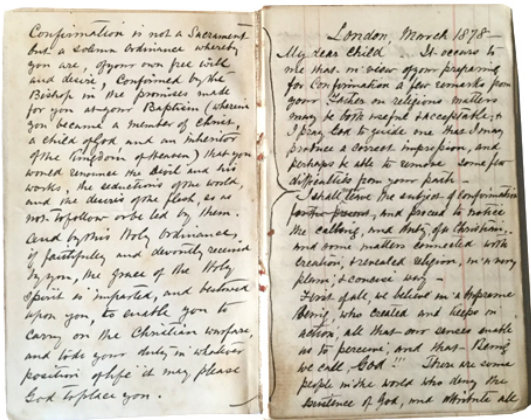 Confirmation is not a Sacrament
but a solemn Ordinance whereby
you are, of your own free will
and desire, Confirmed by the
Bishop in the promises made
for you at your Baptism (wherein
you became a member of Christ,
a child of God and an inheritor
of the Kingdom of Heaven) that you
would renounce the Devil and his
works, the seductions of the world,
and the desires of the flesh, so as
not to follow or be led by them.
And by this Holy Ordinance,
if faithfully and devoutly received
by you, the grace of the Holy
Spirit is imparted, and bestowed
upon you, to enable you to
carry on the Christian warfare,
and to do your duty in whatever
position of life it may please
God to place you.
London, March 1878
My dear Child It occurs to
me that in view of your preparing
for Confirmation a few remarks from
your Father on religious matters
may be both useful & acceptable, &
I pray God to guide me that I may
produce a correct impression, and
perhaps be able to remove some few
difficulties from your path –
I shall leave the subject of confirmation
for the present, and proceed to notice
the calling, and duty, of a Christian,
and some matters connected with
creation, & revealed religion, in a very
plain, & concise way –
First of all, we believe in a Supreme
Being, who created and keeps in
action, all that our senses enable
us to perceive, and that Being
we call, God!!! There are some
people in the world who deny the
existence of God, and attribute all